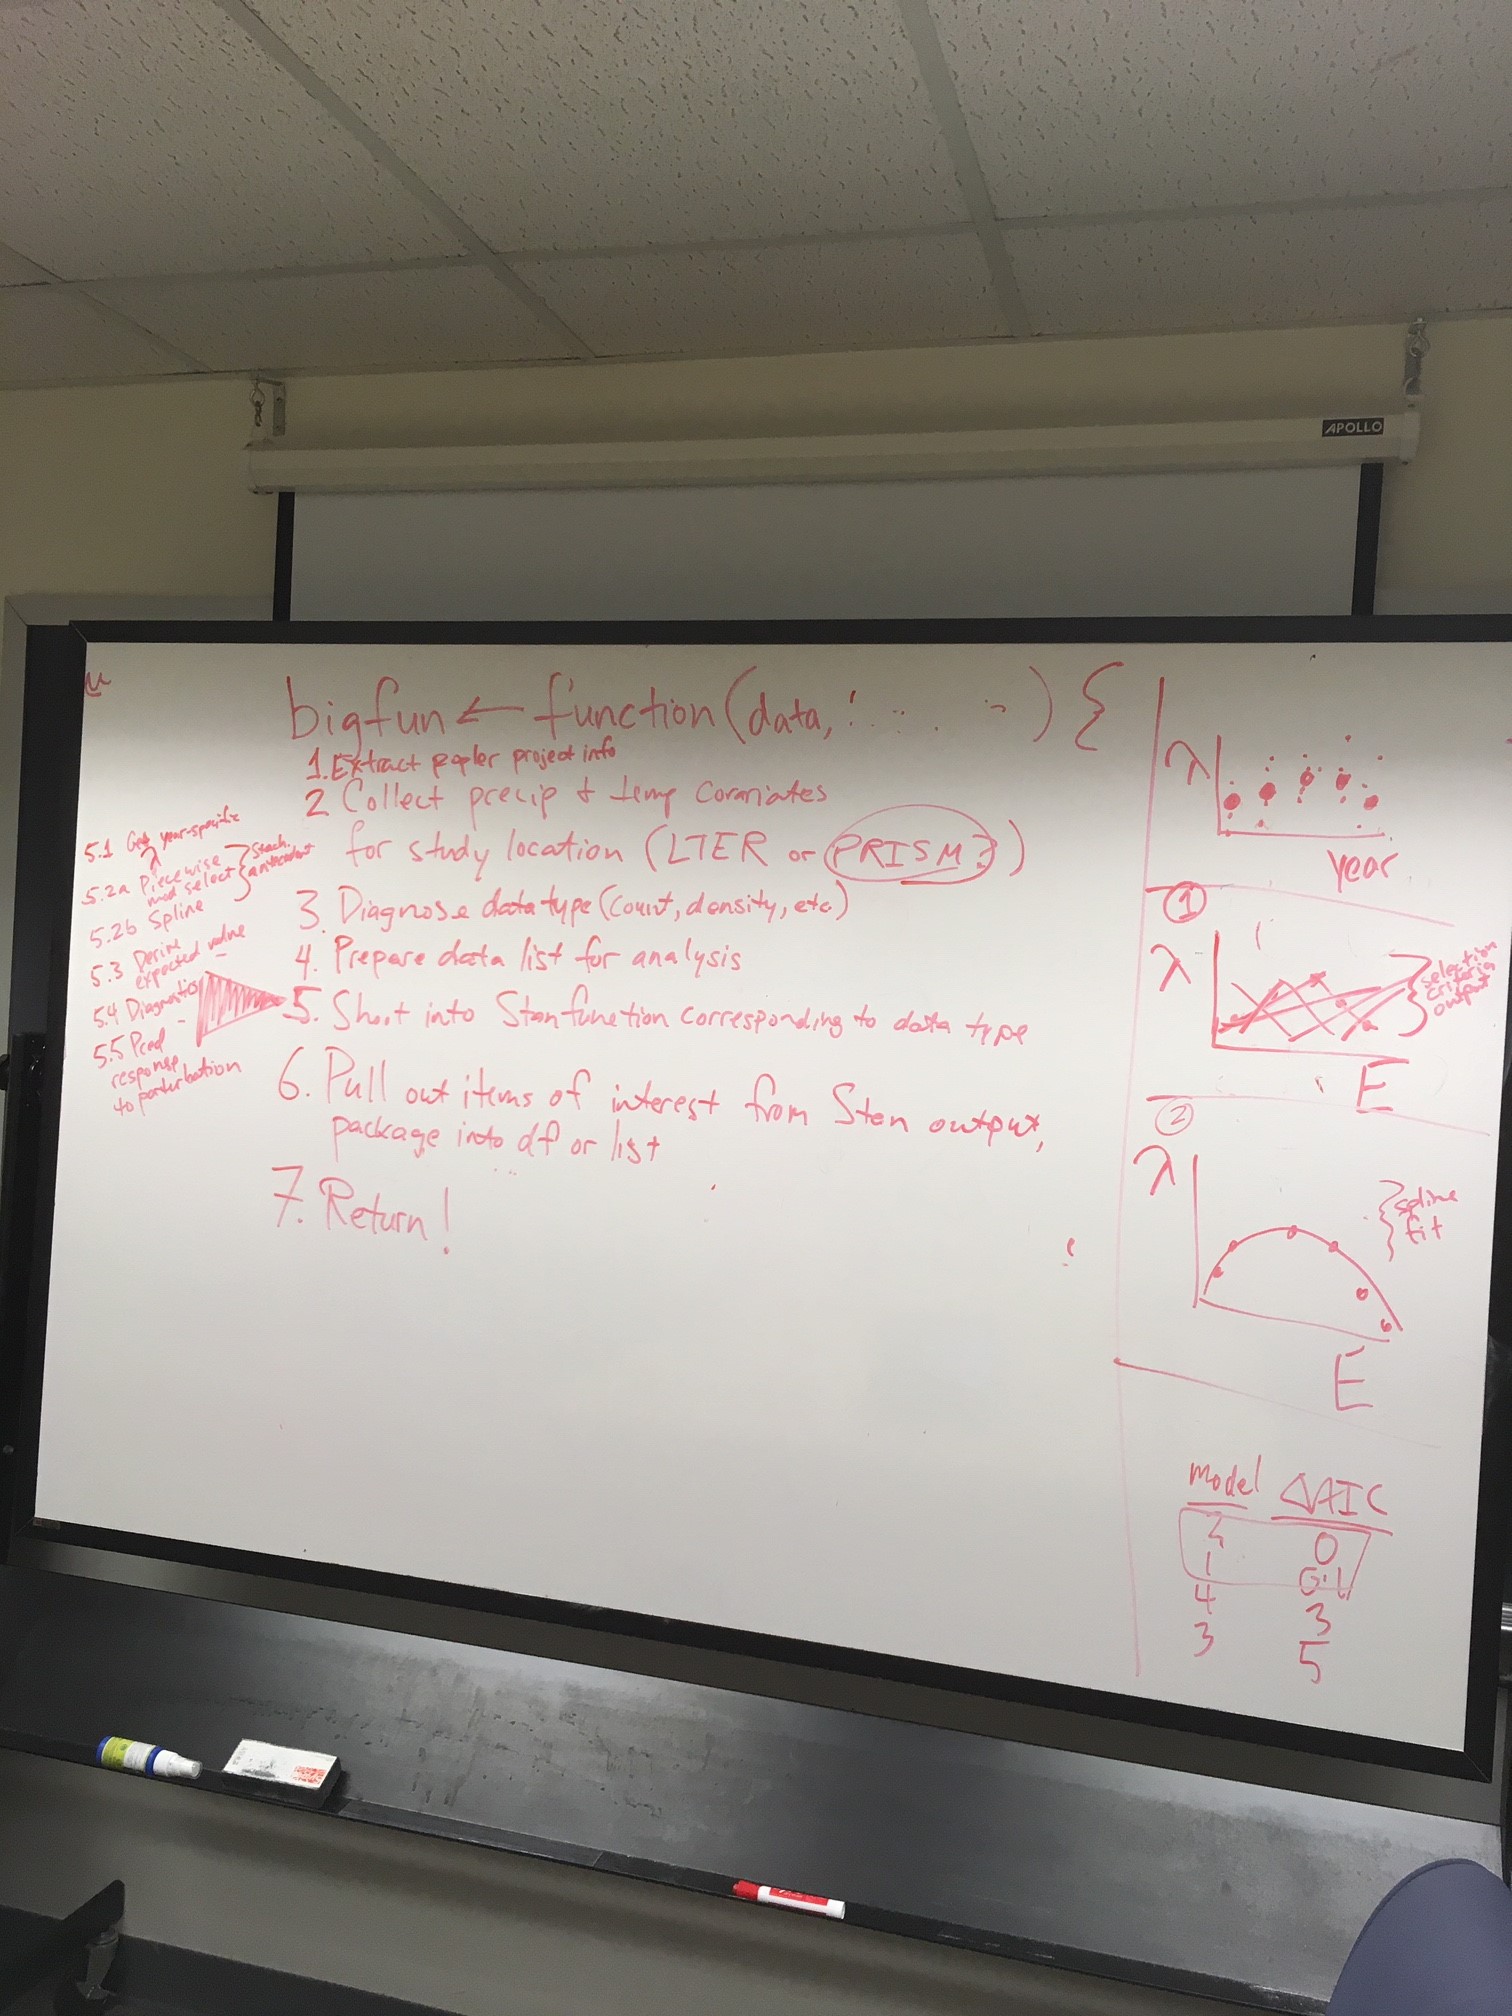 APOLLO
bigfun ← function(data, ) {
1. Extract popler project info
2 Collect precip + temp covariates
for study location (LTER or PRISM?)
3. Diagnose data type (count, density, etc.)
4. Prepare data list for analysis
5. Shoot into Stan function corresponding to data type
6. Pull out items of interest from Stan output,
package into df or list
7. Return!
5.1 Get year-specific
λ
5.2a Piecewise
mod select
5.2b Spline
antecedent
5.3 Derive
expected value
5.4 Diagnostics
5.5 Pred
response
to perturbation
λ
year
1
λ
selection
criteria
output
E
2
λ
spline
fit
E
Model ΔAIC
2 0
1 0.1
4 3
3 5